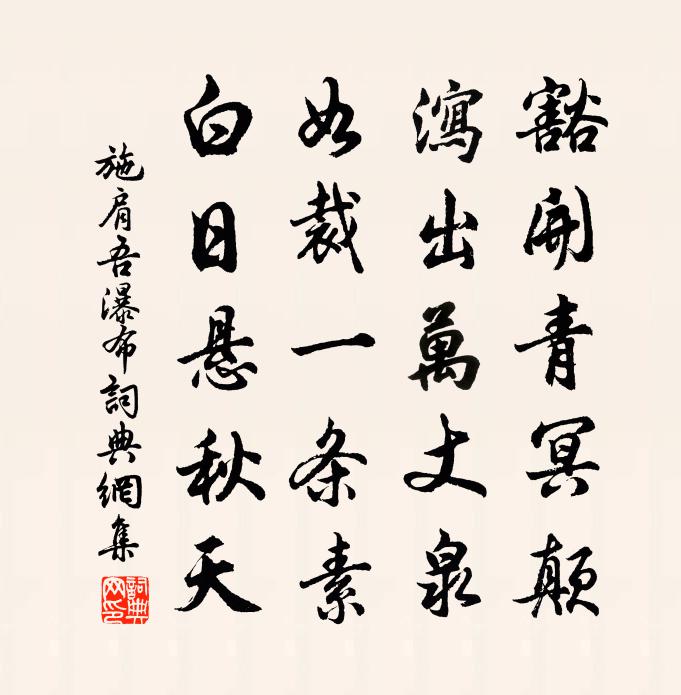 豁開青冥顛
瀉出萬丈泉
如裁一条素
白日悬秋天
施肩吾瀑布詞典網集
詞典網印